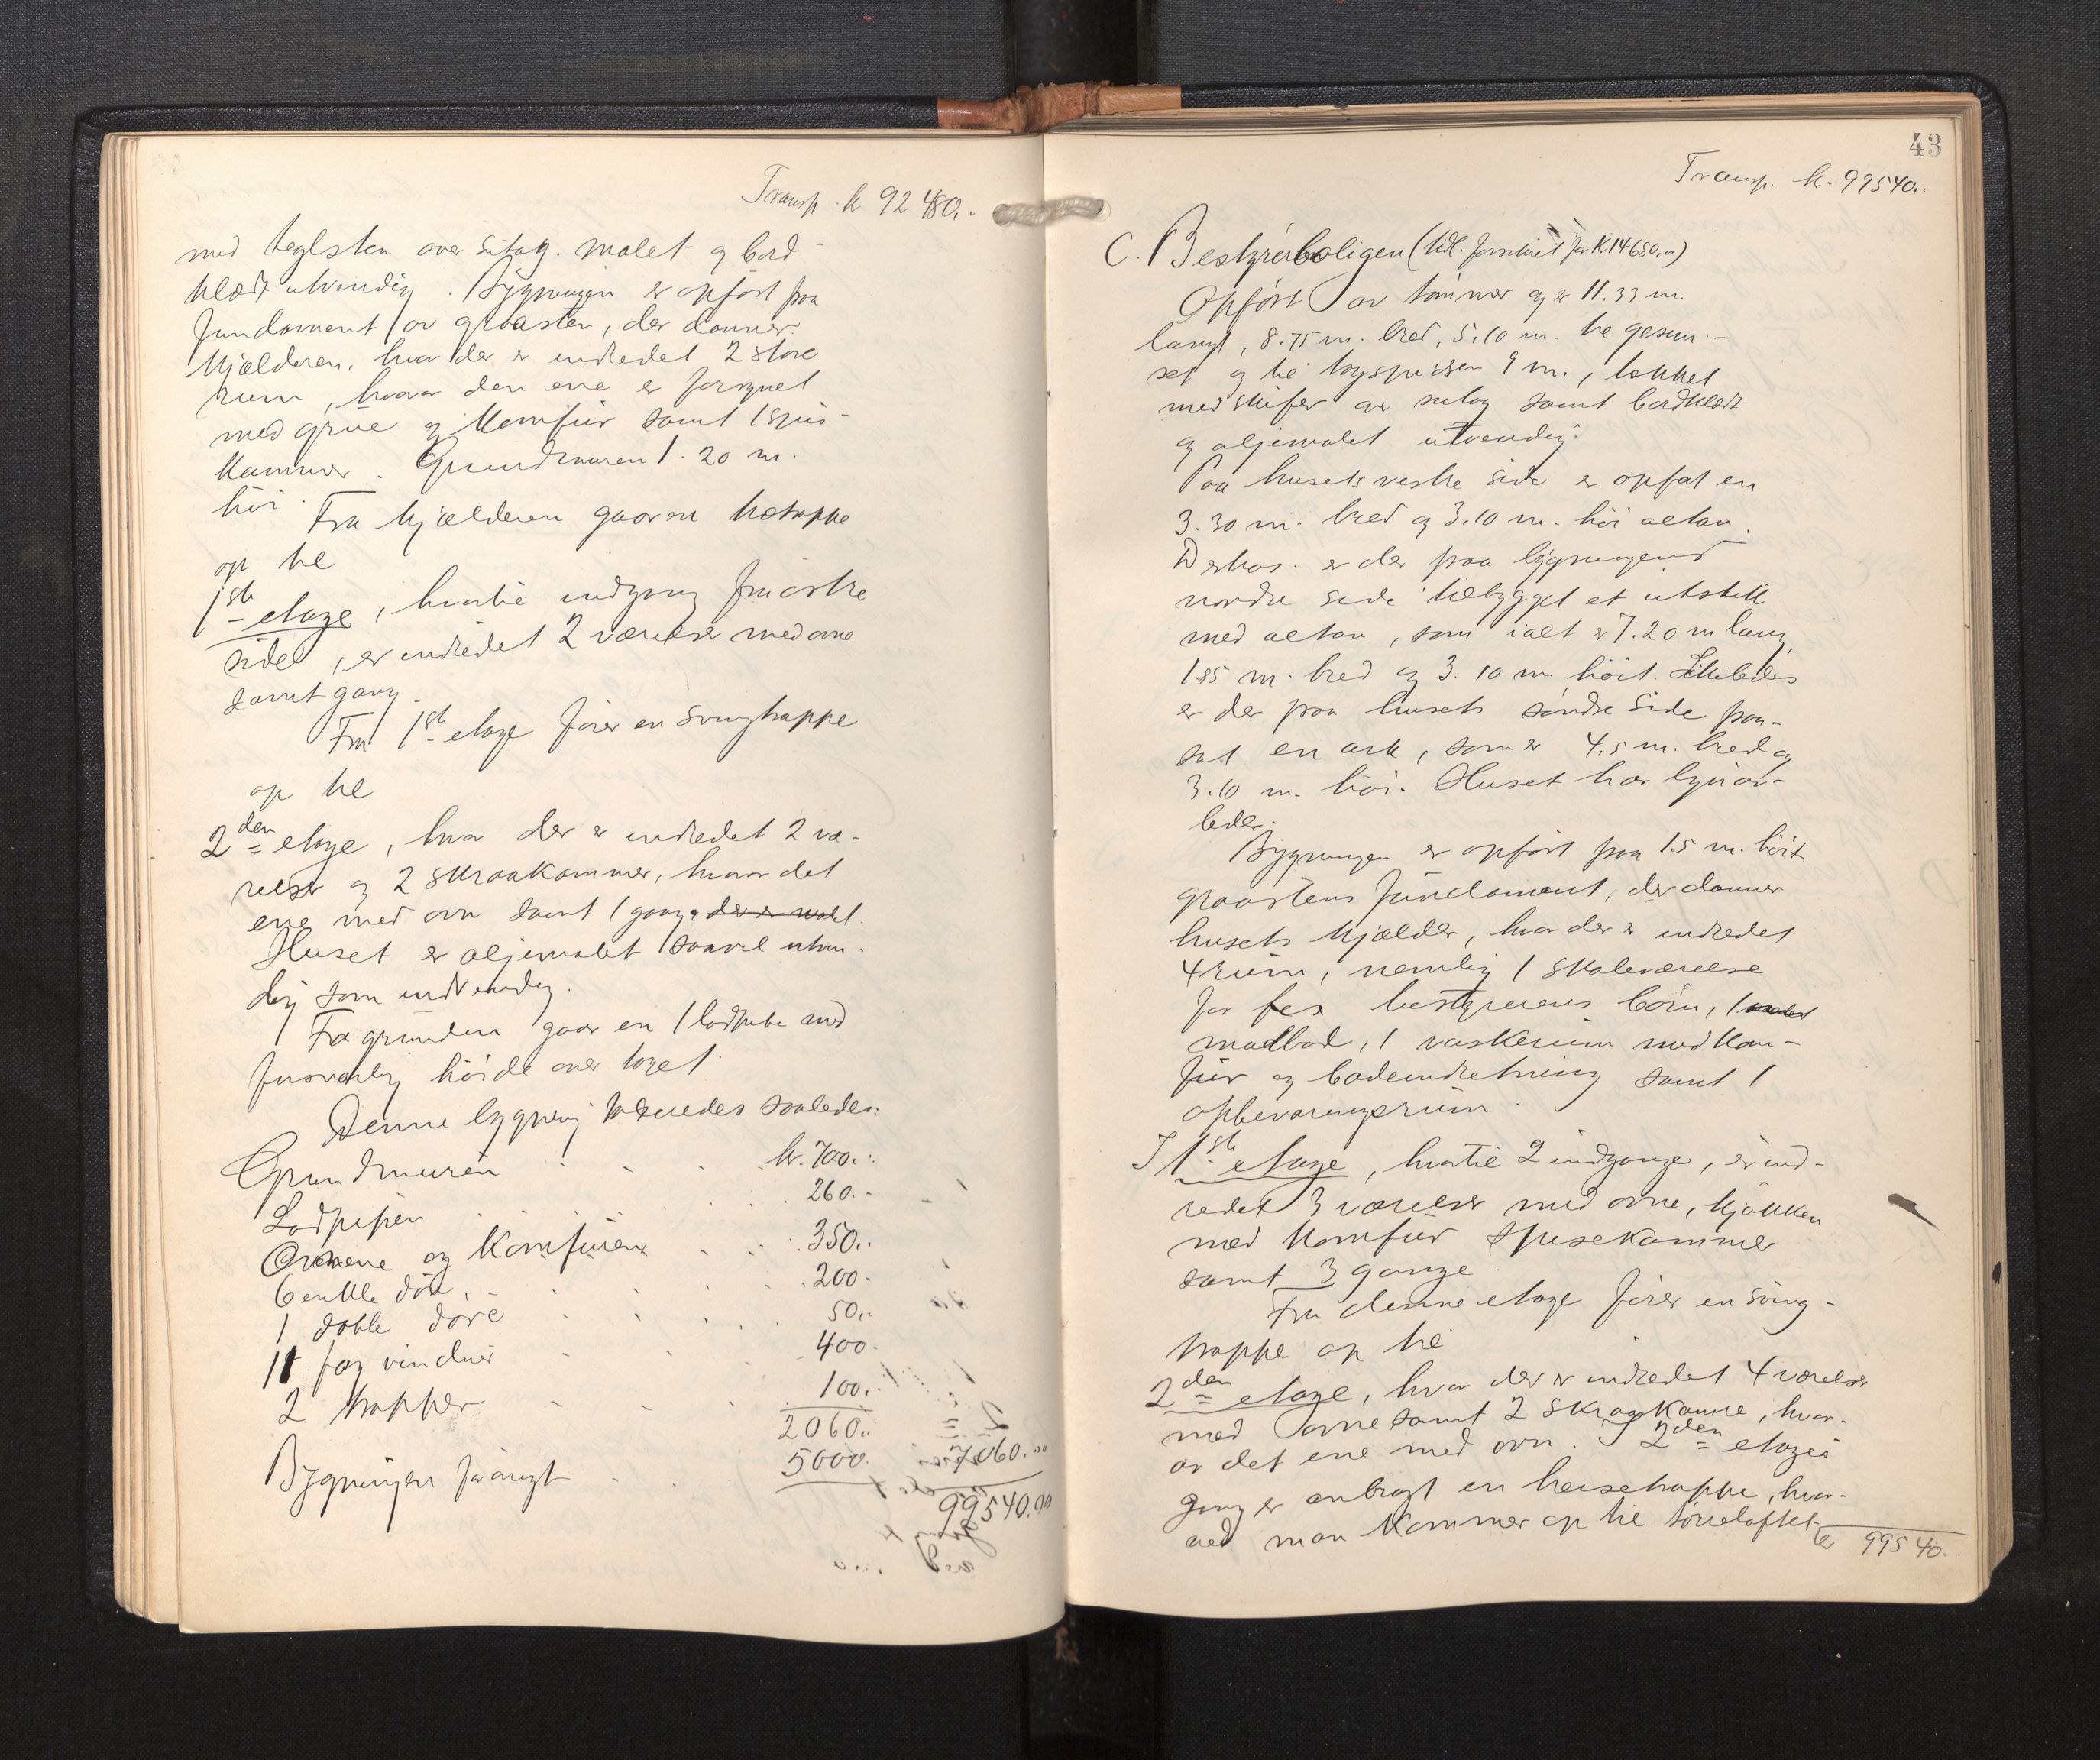 Transp. kr 92 480,-
med teglsten over sutag. malet og bord-
klædt utvendig. Bygningen er opført paa
fundament av graasten, der danner
kjælderen, hvor der er indredet 2 store
rum, hvorav den ene er forsynet
med grue og komfur samt 1 spis-
kammer. Grundmuren 1.20 m.
høi. Fra kjælderen gaar en trætrappe
op til
1ste etage, hvortil indgang fra østre
side, er indredet 2 værelser med ovne
samt gang.
Fra 1ste etage fører en svingtrappe
op til
2den etage, hvor der er indredet 2 væ-
relser og 2 skraakammer, hvorav det
ene med ovn samt 1 gang. der er malet.
Huset er oljemalet saavel utven-
dig som indvendig.
Fra grunden gaar en 1 lodpibe med
forsvarlig høide over taget.
Denne bygning takseredes saaledes:
Grundmuren kr. 700.-
Lodpipen 260.-
Ovnene og Komfuren 350.-
6 enkle døre, 200.-
1 doble døre 50.-
11 fag vinduer 400.-
2 trapper 100.-
2060.-
Bygningen forøvrigt 5000.- 7060.00
99540.00
43
Transp. kr. 99540.-
C. Bestyrerboligen (tidl. forsikret for K 14650,00)
Opført av tømmer og er 11.33 m.
langt, 8.75 m. bred, 5.10 m. til gesim-
set og til tagspidsen 9 m., tækket
med skifer over sutag samt bordklædt
og oljemalet utvendig.
Paa husets vestre side er opsat en
3.30 m. bred og 3.10 m. høi altan.
Derhos er der paa bygningens
nordre side tilbygget et utstikk
med altan, som ialt er 7.20 m lang,
1.85 m. bred og 3.10 m. høit. Likeledes
er der paa husets søndre side paa-
sat en ark, som er 4,5 m. bred og
3.10 m. høi. Huset har lynav-
leder.
Bygningen er opført paa 1.5 m. høit
graastens fundament, der danner
husets kjælder, hvor der er indredet
4 rum, nemlig 1 skoleværelse
for bestyrerens børn, 1
matbod, 1 vaskerum med kom-
fur og badeindretning samt 1
opbevaringsrum.
I 1ste etage, hvortil 2 indgange, er ind-
redet 3 værelser med ovne, kjøkken
med komfur spisekammer
samt 3 gange.
Fra denne etage fører en sving-
trappe op til
2den etage, hvor der er indredet 4 værelser
med ovne samt 2 skraakamre, hvor-
av det ene med ovn. I 2den etages
gang er anbragt en heisetrappe, hvor-
ved man kommer op til tørreloftet.
kr 99540.-